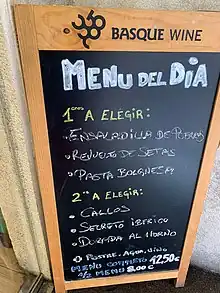 BASQUE WINE
MENU DEL DIA
1ᵉʳᵒˢ A ELEGIR:
• ENSALADILLA DE PUERROS
• REVUELTO DE SETAS
• PASTA BOLOGNESA
2ᵒˢ A ELEGIR:
• CALLOS
• SECRETO IBERICO
• DORADA AL HORNO
+ POSTRE, AGUA, VINO
MENU COMPLETO 12.50€
½ MENU 8.00€